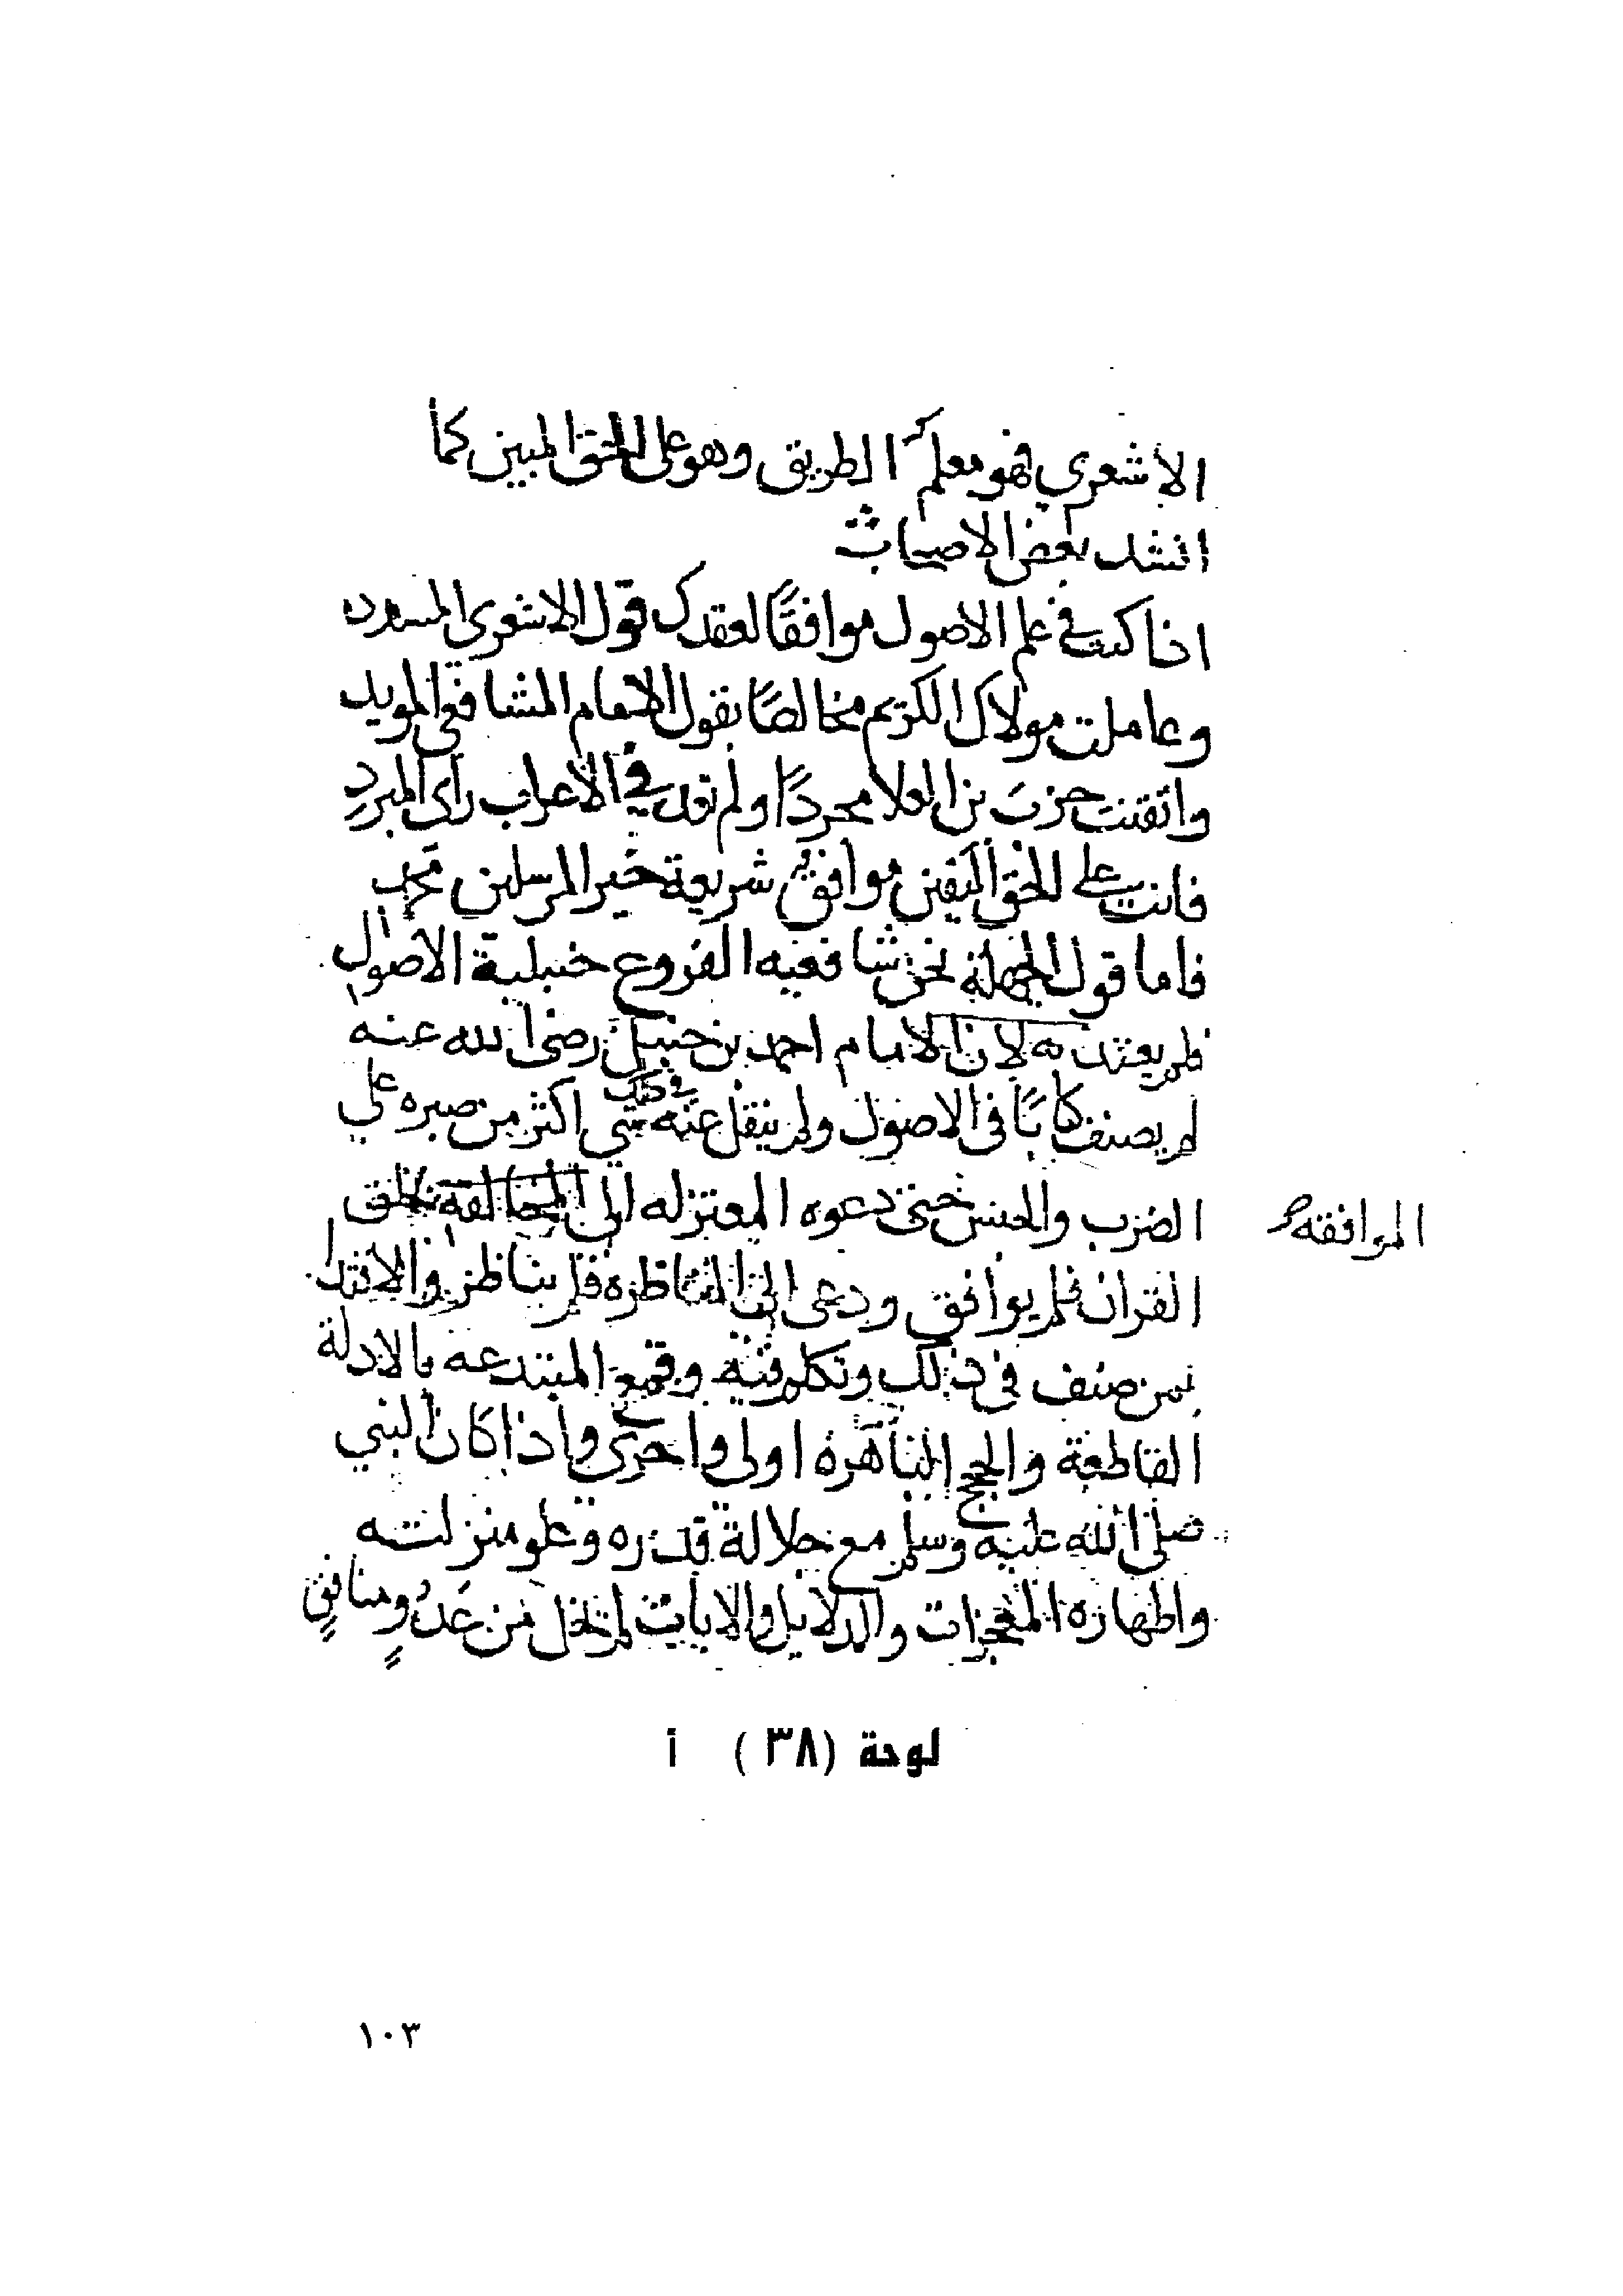 الأشعري فهو معلم الطريق وهو على الحق المبين كما
انشد بعض الاصحاب
اذا كنت في علم الاصول موافقًا لعقدك قول الاشعرى المسدد
وعاملت مولاك الكريم مخالصًا بقول الامام الشافعي المويد
واتقنت حرف بن العلا مجردًا ولم تعد في الاعراب رأى المبرد
فانت على الحق اليقين موافق شريعة خير المرسلين محمد
فاما قول الجهلة نحن شافعيه الفروع حنبلية الاصول
فلم يعتد به لان الامام احمد بن حنبل رضى الله عنه
لم يصنف كتابًا فى الاصول ولم ينقل عنه في ذلك شي اكثر من صبره على
الضرب والحبس حتى دعوه المعتزله الى المخالفة بخلق
الموافقه
القران فلم يوافق ودعى الى المناظرة فلم يناظر والاقتدا
بمن صنف في ذلك وتكلم فيه وقمع المبتدعة بالادلة
القاطعة والحجج الباهرة اولى واحرى واذا كان النبي
صلى الله عليه وسلم مع جلالة قدره وعلو منزلته
واظهاره المعجزات والدلايل والايات لم تخل من عدو ومنافق
لوحة (٣٨) أ
١٠٣